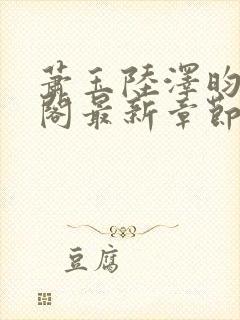 蕭玉陸澤昀
閣最新章節
豆腐